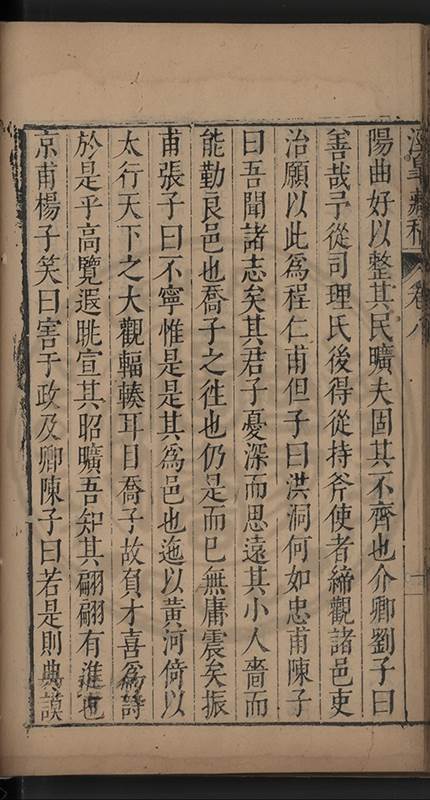 涇皋藏稿 卷八
陽曲好以整其民曠夫固其不齊也介卿劉子曰
善哉予從司理氏後得從持斧使者締觀諸邑吏
治願以此為程仁甫但子曰洪洞何如忠甫陳子
曰吾聞諸志矣其君子憂深而思遠其小人嗇而
能勤良邑也喬子之徃也仍是而已無庸震矣振
甫張子曰不寧惟是是其為邑也迤以黄河倚以
太行天下之大觀輻輳耳目喬子故負才喜為詩
於是乎高覽遐眺宣其昭曠吾知其翩翩有進也
京甫楊子笑曰害于政及卿陳子曰若是則典謨